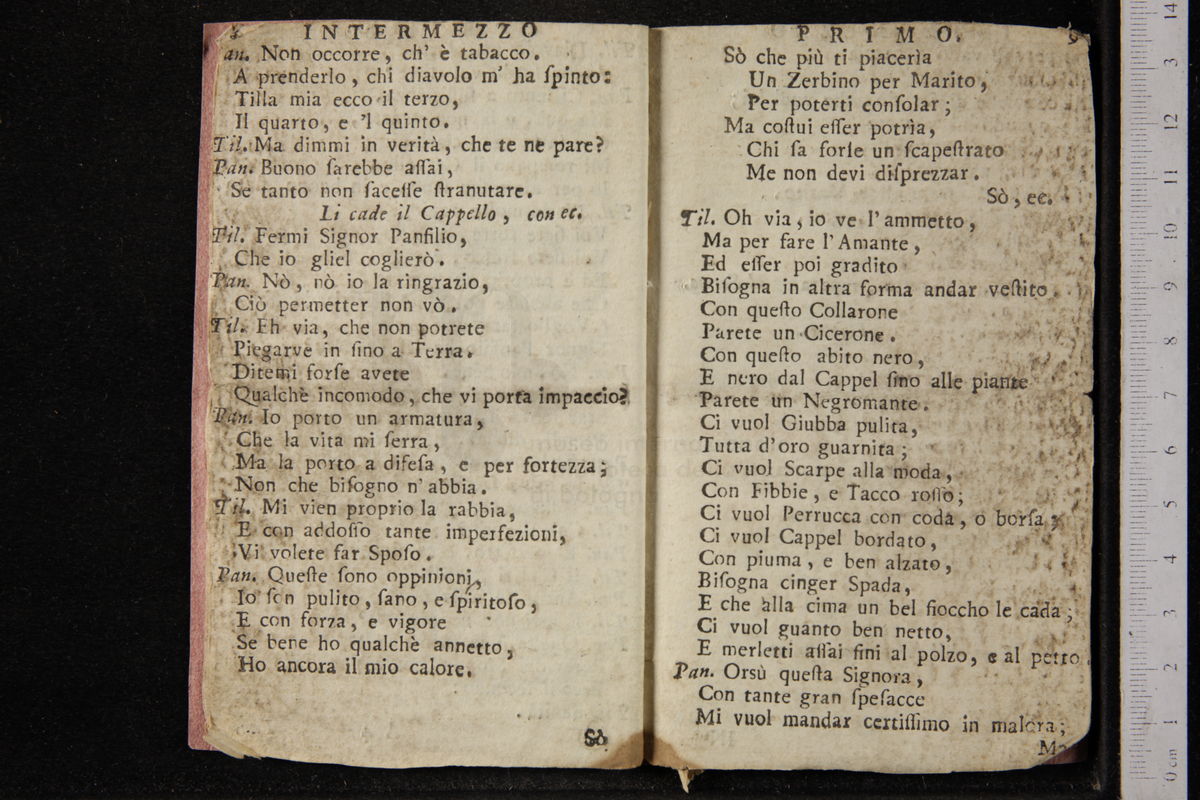 INTERMEZZO
an. Non occorre, ch' è tabacco.
A prenderlo, chi diavolo m' ha ſpinto:
Tilla mia ecco il terzo,
Il quarto, e 'l quinto.
Til. Ma dimmi in verità, che te ne pare?
Pan. Buono ſarebbe aſſai,
Se tanto non faceſſe ſtranutare.
Li cade il Cappello, con ec.
Til. Fermi Signor Panfilio,
Che io gliel coglierò.
Pan. Nò, nò io la ringrazio,
Ciò permetter non vò.
Til. Eh via, che non potrete
Piegarve in ſino a Terra.
Ditemi forſe avete
Qualchè incomodo, che vi porta impaccio?
Pan. Io porto un armatura,
Che la vita mi ſerra,
Ma la porto a difeſa, e per fortezza;
Non che biſogno n' abbia.
Til. Mi vien proprio la rabbia,
E con addoſſo tante imperfezioni,
Vi volete far Spoſo.
Pan. Queſte ſono oppinioni,
Io ſon pulito, ſano, e ſpiritoſo,
E con forza, e vigore
Se bene ho qualchè annetto,
Ho ancora il mio calore.
Sò
PRIMO. 9
Sò che più ti piacerìa
Un Zerbino per Marito,
Per poterti conſolar;
Ma coſtui eſſer potrìa,
Chi ſa forſe un ſcapeſtrato
Me non devi diſprezzar.
Sò, ec.
Til. Oh via, io ve l'ammetto,
Ma per fare l'Amante,
Ed eſſer poi gradito
Biſogna in altra forma andar veſtito.
Con queſto Collarone
Parete un Cicerone.
Con queſto abito nero,
E nero dal Cappel ſino alle piante
Parete un Negromante.
Ci vuol Giubba pulita,
Tutta d'oro guarnita;
Ci vuol Scarpe alla moda,
Con Fibbie, e Tacco roſſo;
Ci vuol Perrucca con coda, o borſa;
Ci vuol Cappel bordato,
Con piuma, e ben alzato,
Biſogna cinger Spada,
E che alla cima un bel fioccho le cada;
Ci vuol guanto ben netto,
E merletti aſſai fini al polzo, e al petto.
Pan. Orsù queſta Signora,
Con tante gran ſpeſacce
Mi vuol mandar certiſſimo in malora;
Ma
0 cm 1 2 3 4 5 6 7 8 9 10 11 12 13 14